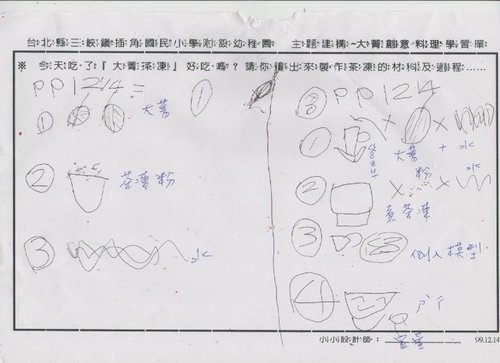 台北縣三峽鎮插角國民小學附設幼稚園 主題建構~大菁創意料理學習單
※ 今天吃了『大菁茶凍』好吃嗎?請你畫出來製作茶凍的材料及過程......
PP1214
①
大菁
② 茶凍粉
③ 水
PP1214
① 大菁 + 水
粉
② 煮茶凍
③ 倒入模型
④
小小設計師:
99.12.14